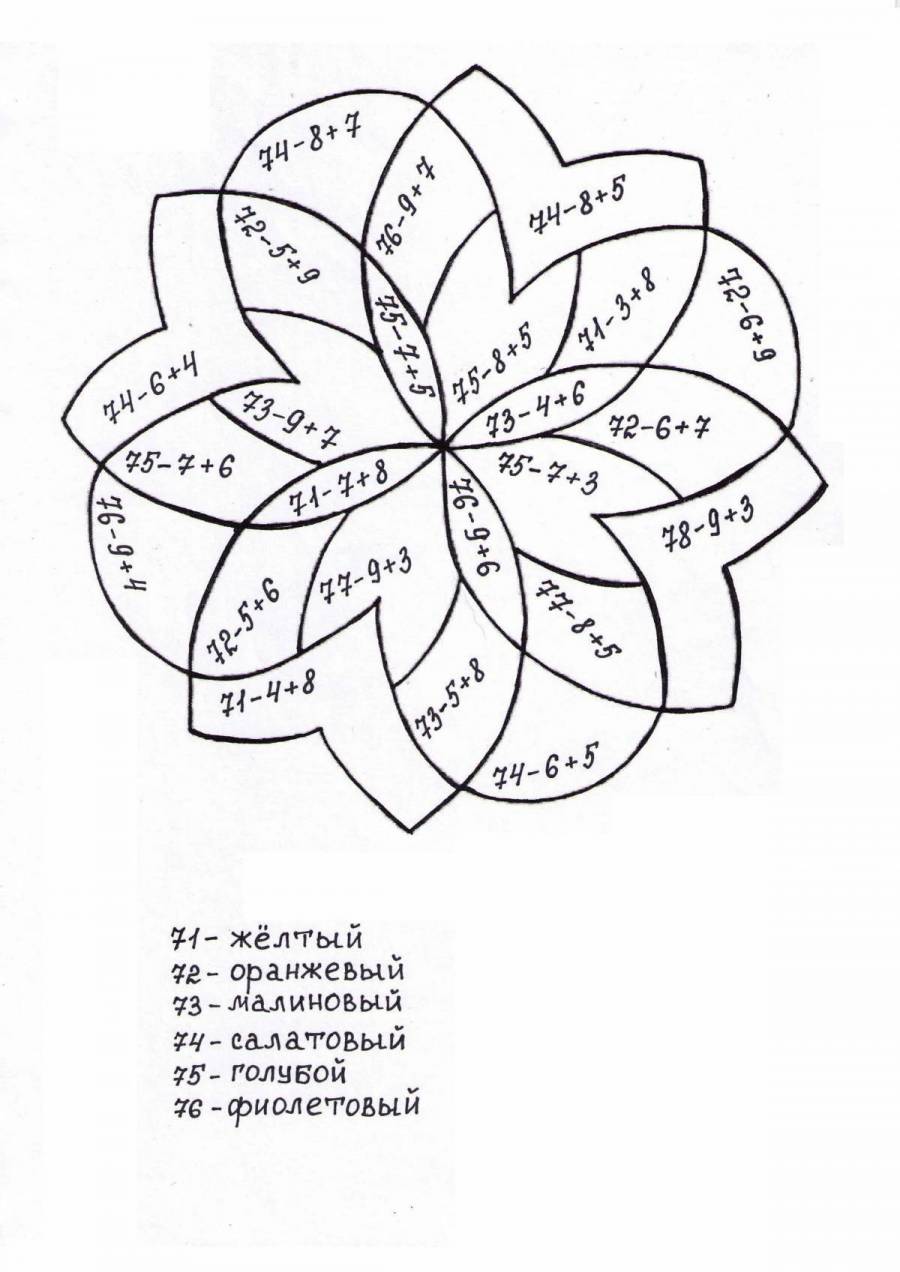 74-8+7
76-9+7
74-8+5
72-5+9
71-3+8
72-6+9
75-7+5
75-8+5
74-6+4
73-9+7
73-4+6
72-6+7
75-7+6
71-7+8
75-7+3
76-9+4
76-9+6
78-9+3
77-9+3
72-5+6
77-8+5
71-4+8
73-5+8
74-6+5
71- жёлтый
72- оранжевый
73- малиновый
74- салатовый
75- голубой
76- фиолетовый